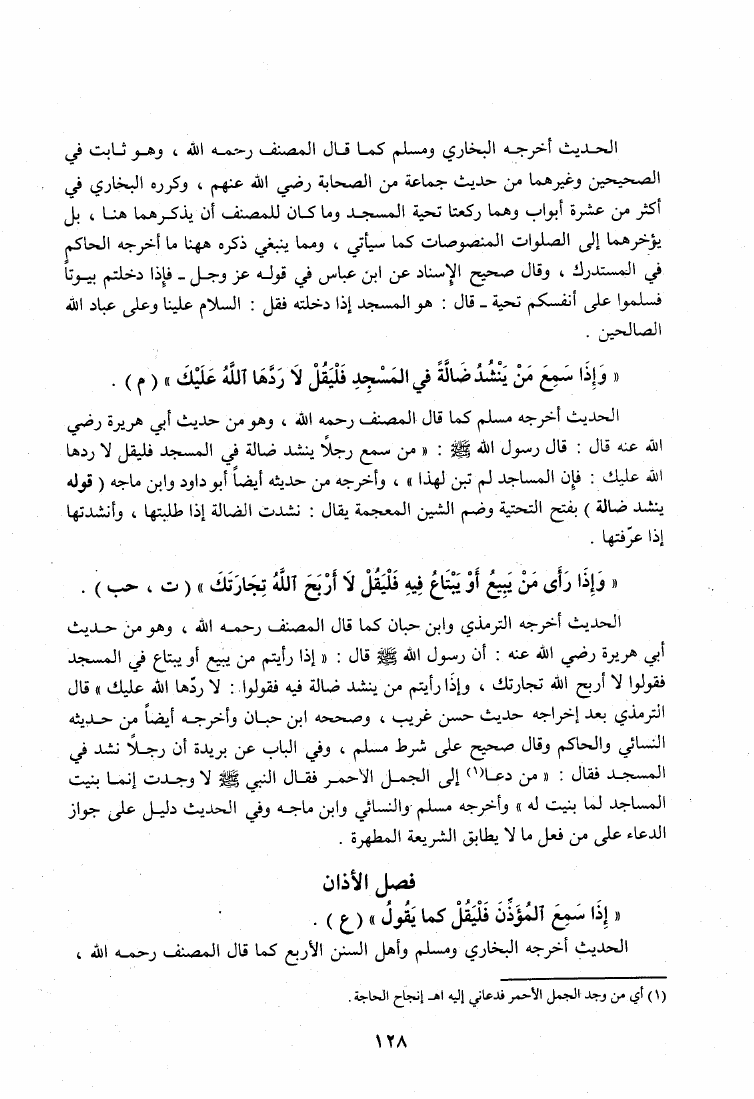 الحديث أخرجه البخاري ومسلم كما قال المصنف رحمه الله ، وهو ثابت في
الصحيحين وغيرهما من حديث جماعة من الصحابة رضي الله عنهم ، وكرره البخاري في
أكثر من عشرة أبواب وهما ركعتا تحية المسجد وما كان للمصنف أن يذكرهما هنا ، بل
يؤخرهما إلى الصلوات المنصوصات كما سيأتي ، ومما ينبغي ذكره ههنا ما أخرجه الحاكم
في المستدرك ، وقال صحيح الإسناد عن ابن عباس في قوله عز وجل ـ فإذا دخلتم بيوتاً
فسلموا على أنفسكم تحية ـ قال : هو المسجد إذا دخلته فقل : السلام علينا وعلى عباد الله
الصالحين .
« وَإِذَا سَمِعَ مَنْ يَنْشُدُ ضَالَّةً في المَسْجِدِ فَلْيَقُلْ لَا رَدَّهَا اللَّهُ عَلَيْكَ » ( م ) .
الحديث أخرجه مسلم كما قال المصنف رحمه الله ، وهو من حديث أبي هريرة رضي
الله عنه قال : قال رسول الله ﷺ : « من سمع رجلاً ينشد ضالة في المسجد فليقل لا ردها
الله عليك : فإن المساجد لم تبن لهذا » ، وأخرجه من حديثه أيضاً أبو داود وابن ماجه ( قوله
ينشد ضالة ) بفتح التحتية وضم الشين المعجمة يقال : نشدت الضالة إذا طلبتها ، وأنشدتها
إذا عرّفتها .
« وَإِذَا رَأَى مَنْ يَبِيعُ أَوْ يَبْتَاعُ فِيهِ فَلْيَقُلْ لَا أَرْبَحَ اللَّهُ تِجَارَتَكَ » ( ت ، حب ) .
الحديث أخرجه الترمذي وابن حبان كما قال المصنف رحمه الله ، وهو من حديث
أبي هريرة رضي الله عنه : أن رسول الله ﷺ قال : « إذا رأيتم من يبيع أو يبتاع في المسجد
فقولوا لا أربح الله تجارتك ، وإذا رأيتم من ينشد ضالة فيه فقولوا : لا ردّها الله عليك » قال
الترمذي بعد إخراجه حديث حسن غريب ، وصححه ابن حبان وأخرجه أيضاً من حديثه
النسائي والحاكم وقال صحيح على شرط مسلم ، وفي الباب عن بريدة أن رجلاً نشد في
المسجد فقال : « من دعا(١) إلى الجمل الأحمر فقال النبي ﷺ لا وجدت إنما بنيت
المساجد لما بنيت له » وأخرجه مسلم والنسائي وابن ماجه وفي الحديث دليل على جواز
الدعاء على من فعل ما لا يطابق الشريعة المطهرة .
فصل الأذان
« إِذَا سَمِعَ المُؤَذِّنَ فَلْيَقُلْ كما يَقُولُ » ( ع ) .
الحديث أخرجه البخاري ومسلم وأهل السنن الأربع كما قال المصنف رحمه الله ،
(١) أي من وجد الجمل الأحمر فدعاني إليه اهـ إنجاح الحاجة .
١٢٨